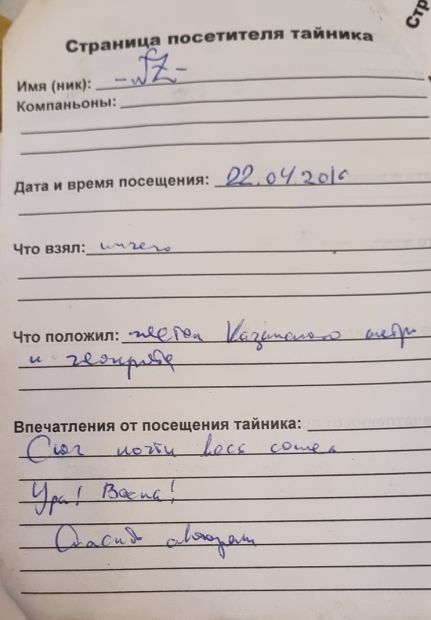 Стр
Страница посетителя тайника
Имя (ник): -√Z-
Компаньоны:
Дата и время посещения: 22.04.2016
Что взял: ничего
Что положил: жетон Казанского метро
и
Впечатления от посещения тайника:
Снег почти весь сошел
Ура! Весна!
Спасибо авторам